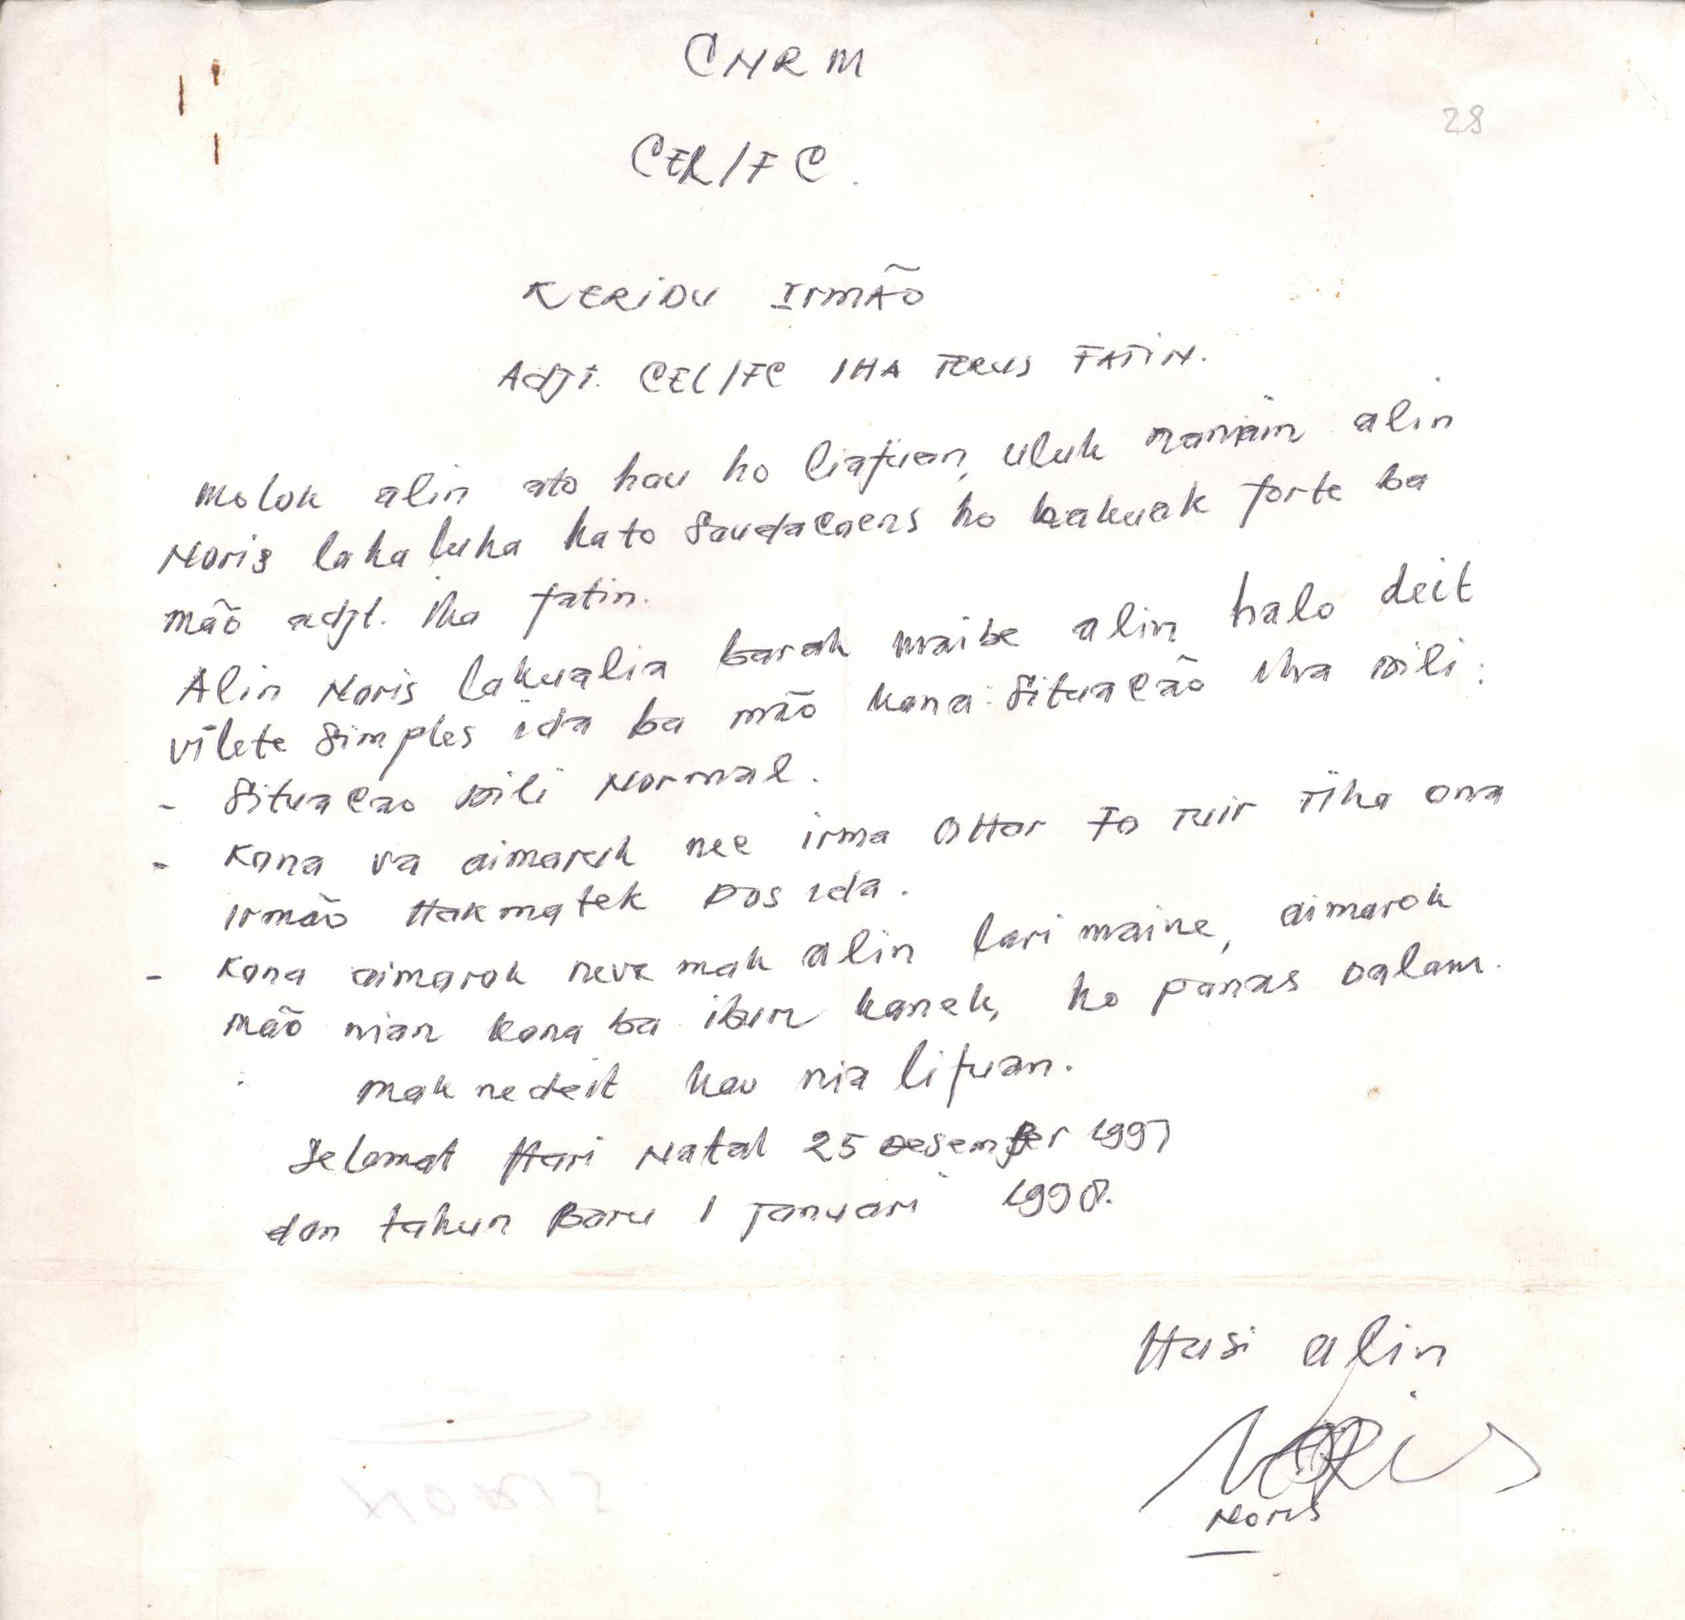 CNRM
28
CER/FC.
KERIDU IrmÃO
Adjt. CEL/FC IHA TERUS FATIN.
Molok alin ato hau ho liafuan, uluk nanain alin
Noris lahaluha hato Saudacoens ho hakuak forte ba
mão adjt. iha fatin.
Alin Noris lakualia barak maibe alin halo deit
vilete Simples ida ba mão kona Situacão iha Dili:
- Situacao Dili Normal.
- Kona va aimaruk nee irma Ottar Fo Tuir Tiha ona
irmão Hakmatek Dos ida.
- Kona aimorok neve mak alin lori maine, aimorok
mão nian kona ba ibun kanek, ho panas Dalam.
Mak ne deit hau nia lifuan.
Selamat Hari Natal 25 Desember 1997
dan tahun Baru 1 januari 1998.
Husi alin
Noris
NORIS